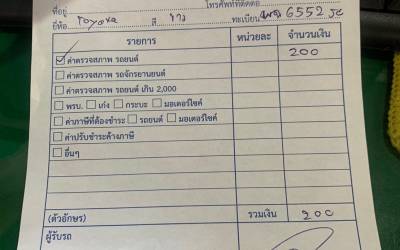 ที่อยู่ โทรศัพท์ที่ติดต่อ
ยี่ห้อ Toyota สี ขาว ทะเบียน 6552
รายการ หน่วยละ จำนวนเงิน
ค่าตรวจสภาพ รถยนต์ 200
ค่าตรวจสภาพ รถจักรยานยนต์
ค่าตรวจสภาพ รถยนต์ เกิน 2,000
พรบ. เก๋ง กระบะ มอเตอร์ไซค์
ค่าภาษีที่ต้องชำระ รถยนต์ มอเตอร์ไซค์
ค่าปรับชำระล้างภาษี
อื่นๆ
(ตัวอักษร) รวมเงิน 200
ผู้รับรถ